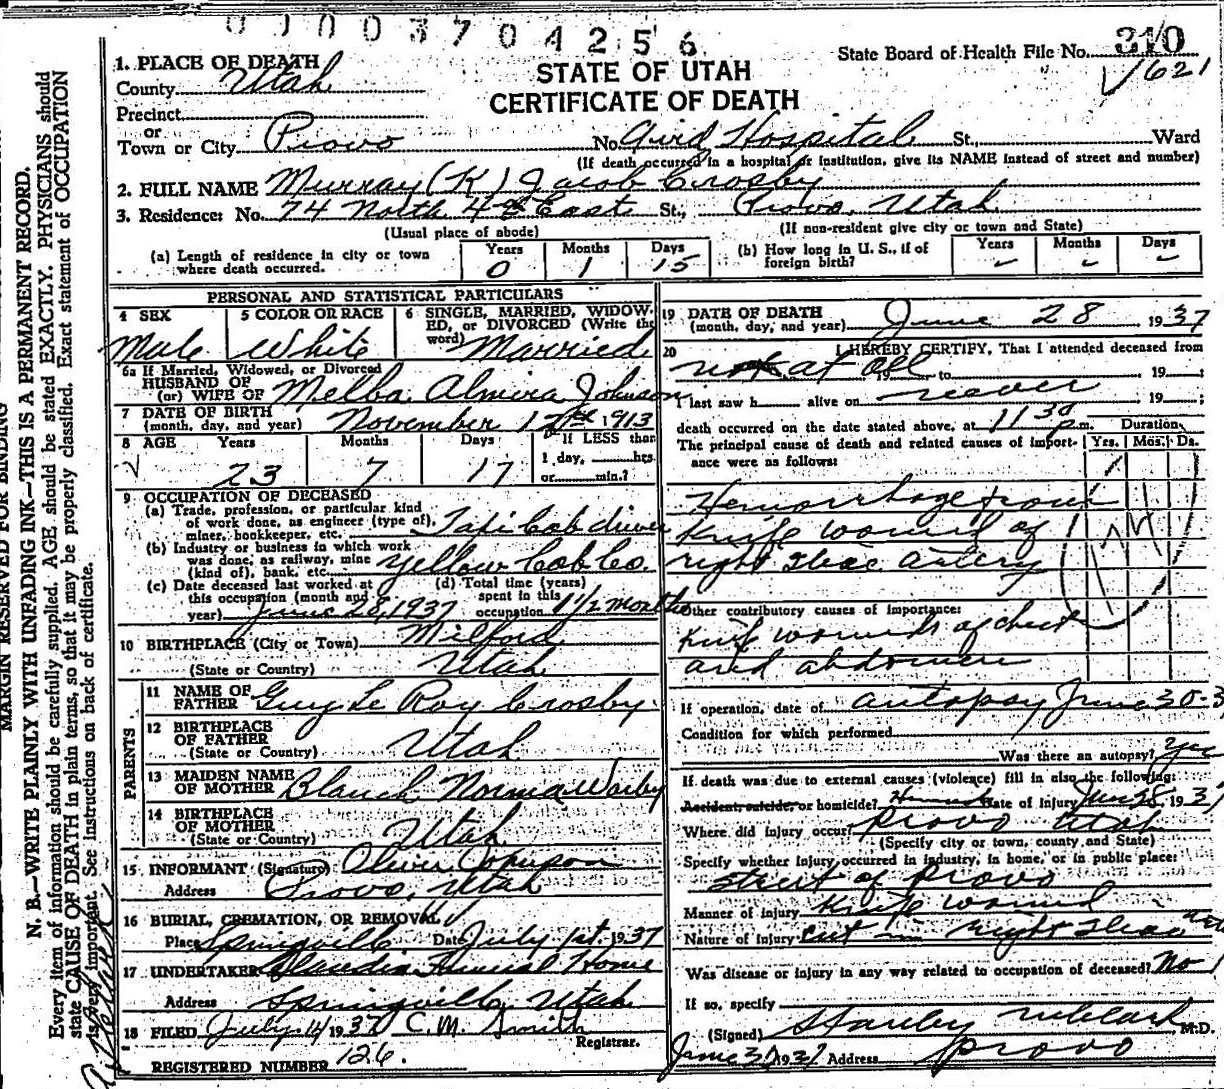 0100370 4256
State Board of Health File No. 310
√621
STATE OF UTAH
CERTIFICATE OF DEATH
1. PLACE OF DEATH
County Utah
Precinct
or
Town or City Provo No. Aird Hospital St., Ward
(If death occurred in a hospital or institution, give its NAME instead of street and number)
2. FULL NAME Murray (K) Jacob Crosby
3. Residence: No. 74 North 4th East St., Provo, Utah
(Usual place of abode) (If non-resident give city or town and State)
(a) Length of residence in city or town where death occurred. Years 0 Months 1 Days 15
(b) How long in U. S., if of foreign birth? Years - Months - Days -
PERSONAL AND STATISTICAL PARTICULARS
4 SEX Male
5 COLOR OR RACE White
6 SINGLE, MARRIED, WIDOWED, or DIVORCED (Write the word) Married
6a If Married, Widowed, or Divorced
HUSBAND OF
(or) WIFE OF Melba Almira Johnson
7 DATE OF BIRTH
(month, day, and year) November 12th 1913
8 AGE Years 23 Months 7 Days 17 If LESS than 1 day, hrs. or min.?
9 OCCUPATION OF DECEASED
(a) Trade, profession, or particular kind of work done, as engineer (type of), miner, bookkeeper, etc. Taxi Cab driver
(b) Industry or business in which work was done, as railway, mine (kind of), bank, etc. Yellow Cab Co.
(c) Date deceased last worked at this occupation (month and year) June 28, 1937
(d) Total time (years) spent in this occupation 1 1/2 months
10 BIRTHPLACE (City or Town) Milford
(State or Country) Utah
PARENTS
11 NAME OF FATHER Guy Le Roy Crosby
12 BIRTHPLACE OF FATHER
(State or Country) Utah
13 MAIDEN NAME OF MOTHER Blanch Norma Warby
14 BIRTHPLACE OF MOTHER
(State or Country) Utah
15 INFORMANT (Signature) Oliver Johnson
Address Provo, Utah
16 BURIAL, CREMATION, OR REMOVAL
Place Springville Date July 1st. 1937
17 UNDERTAKER Claudin Funeral Home
Address Springville, Utah
18 FILED July 1937 C. M. Smith
Registrar.
REGISTERED NUMBER 126.
19 DATE OF DEATH
(month, day, and year) June 28 1937
20 I HEREBY CERTIFY, That I attended deceased from
not at all 19 to 19 ;
I last saw h alive on never 19 ;
death occurred on the date stated above, at 11 30 p.m. Duration
The principal cause of death and related causes of importance were as follows: Yrs. Mos. Ds.
Hemorrhage from
Knife wound of
right Iliac artery
Other contributory causes of importance:
Knife wounds of chest
and abdomen
If operation, date of autopsy June 30-3
Condition for which performed
Was there an autopsy? Yes
If death was due to external causes (violence) fill in also the following:
Accident, suicide, or homicide? Date of Injury June 28, 1937
Where did injury occur? Provo Utah
(Specify city or town, county, and State)
Specify whether injury occurred in industry, in home, or in public place:
Street of Provo
Manner of injury Knife wound
Nature of injury cut in right Iliac
Was disease or injury in any way related to occupation of deceased? No
If so, specify
(Signed) Stanley M.D.
June 1937 Address Provo
MARGIN RESERVED FOR BINDING
N. B.—WRITE PLAINLY WITH UNFADING INK—THIS IS A PERMANENT RECORD.
Every item of information should be carefully supplied. AGE should be stated EXACTLY. PHYSICIANS should
state CAUSE OF DEATH in plain terms, so that it may be properly classified. Exact statement of OCCUPATION
is very important. See instructions on back of certificate.